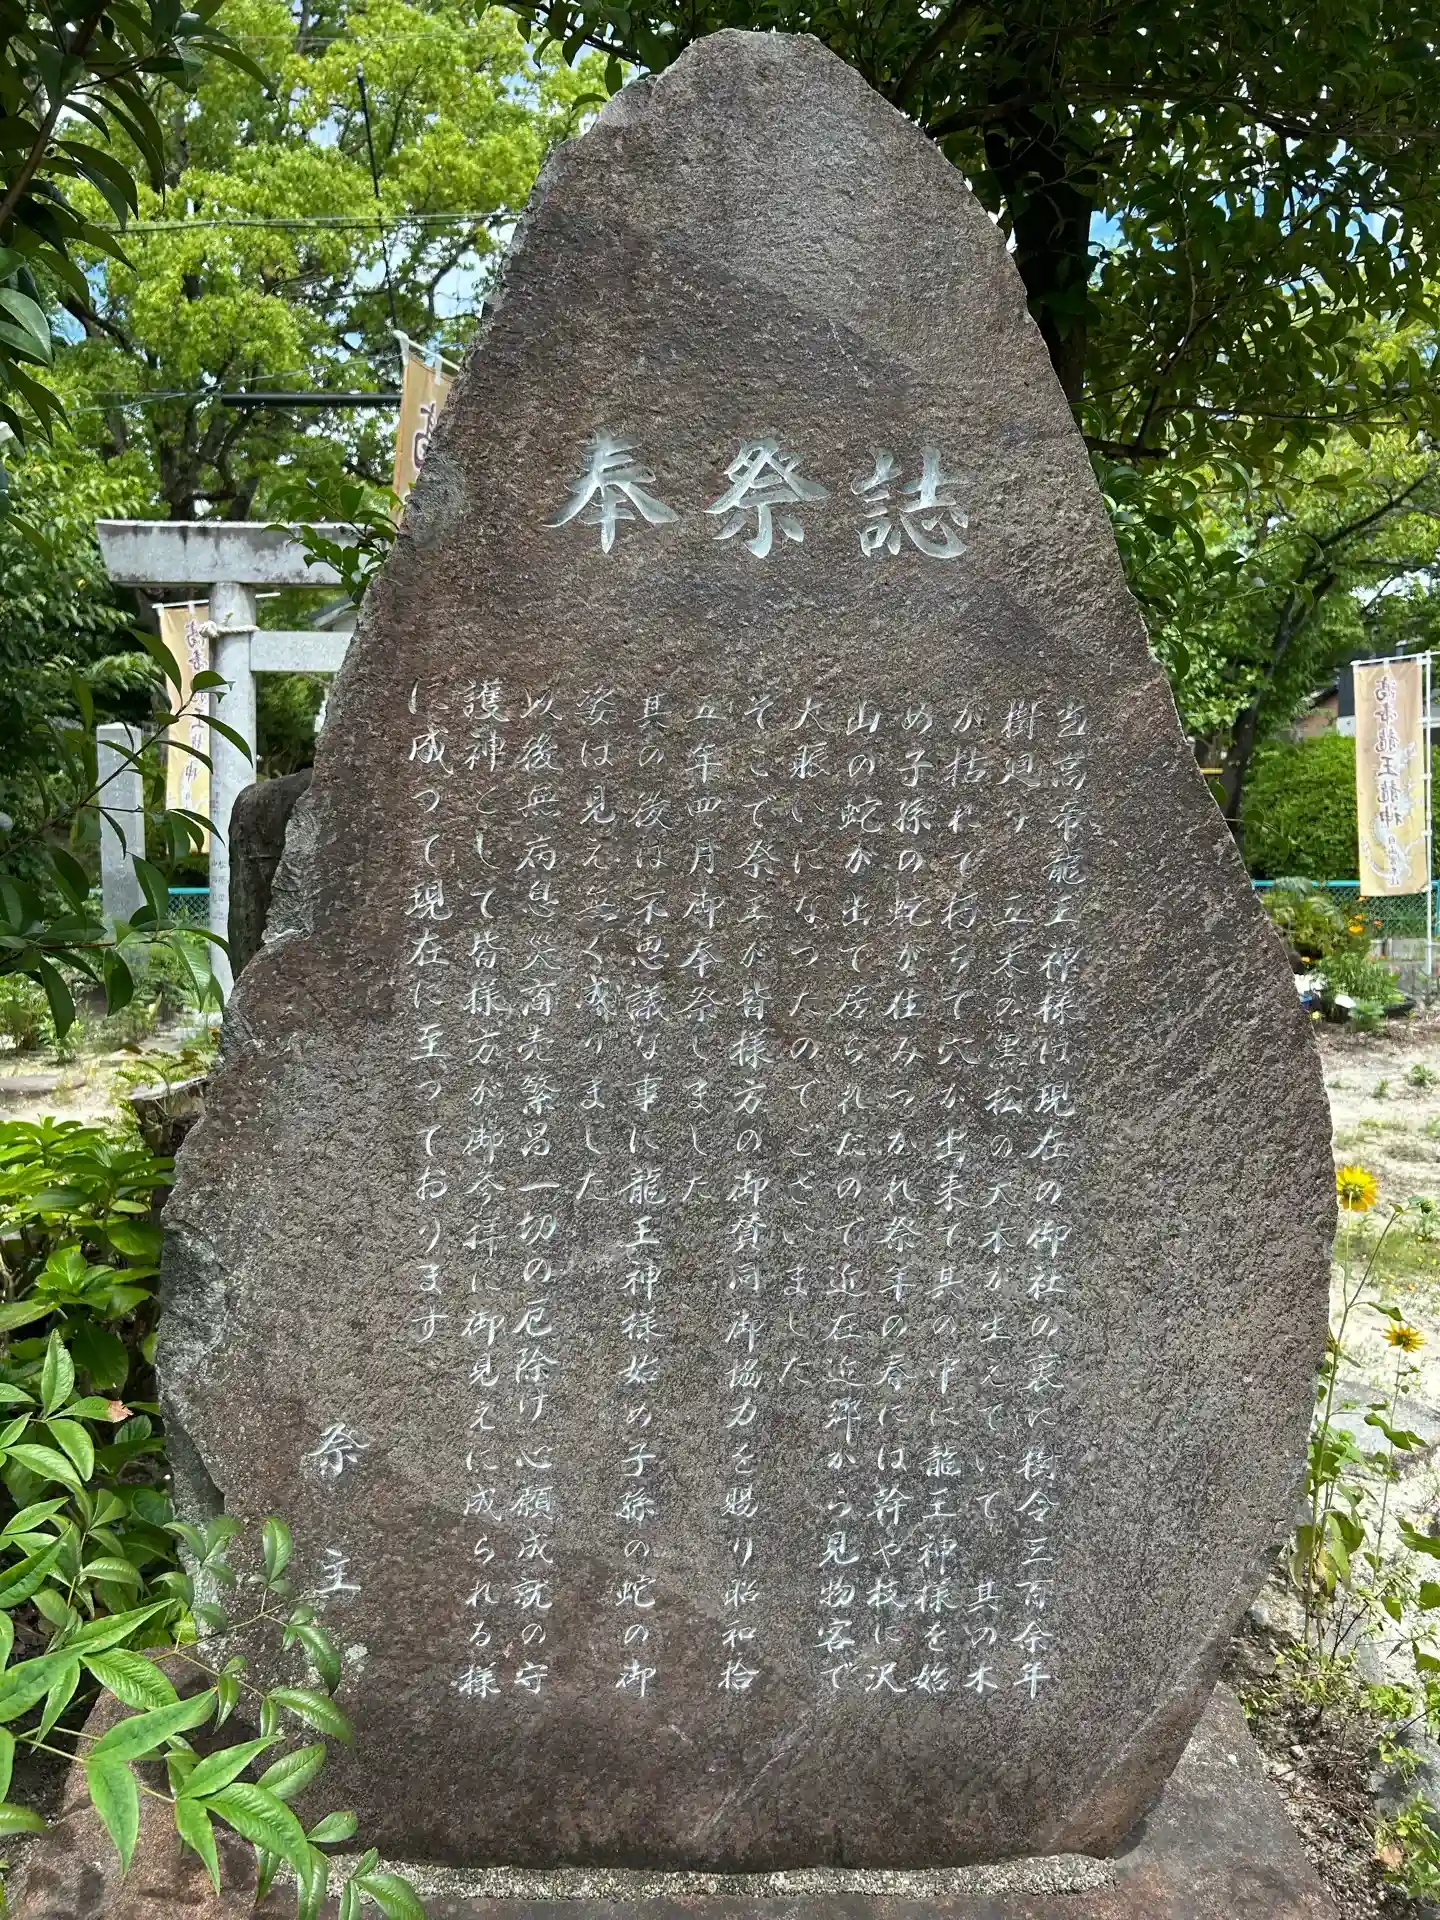 奉祭誌
当高帝龍王神様は現在の御社の裏に樹令三百余年
樹廻り 五米の黒松の大木が生えていて 其の木
が枯れて朽ちて穴が出来て其の中に龍王神様を始
め子孫の蛇が住みつかれ祭年の春には幹や枝に沢
山の蛇が出て居られたので近在近郷から見物客で
大賑いになったのでございました
そこで祭主が皆様方の御賛同御協力を賜り昭和拾
五年四月御奉祭しました
其の後は不思議な事に龍王神様始め子孫の蛇の御
姿は見え無く成りました
以後無病息災商売繁昌一切の厄除け心願成就の守
護神として皆様方が御参拝に御見えに成られる様
に成って現在に至っております
祭主
龍王龍神